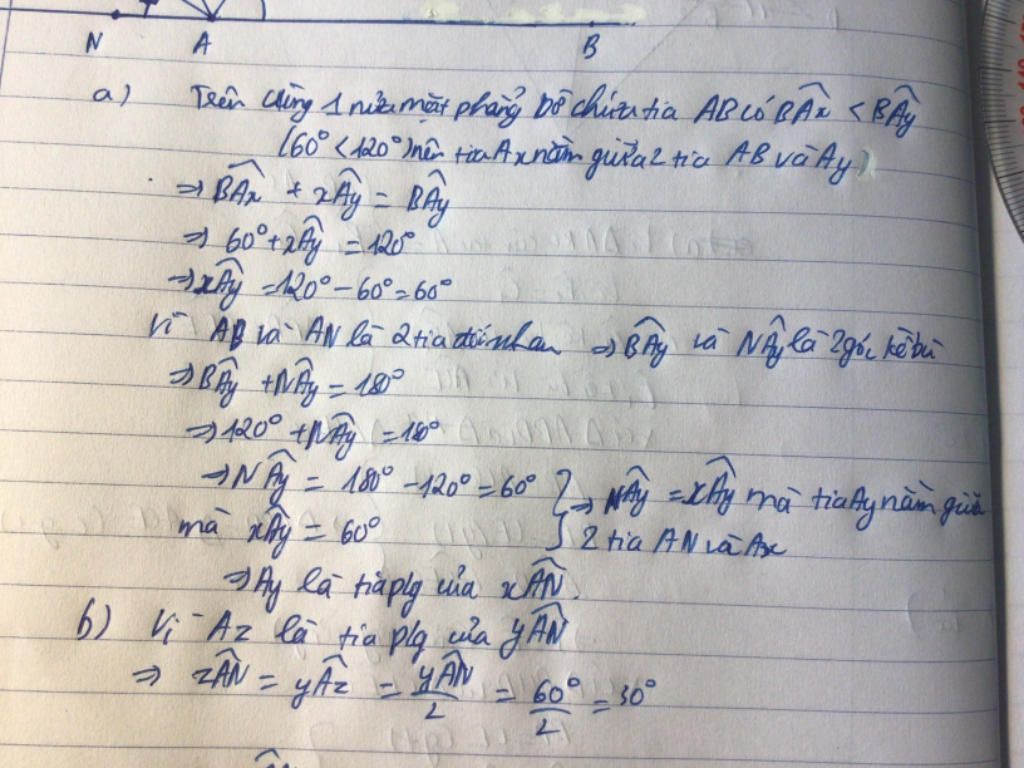 N A B
a) Trên cùng 1 nửa mặt phẳng bờ chứa tia AB có BÂx < BÂy
(60° < 120°) nên tia Ax nằm giữa 2 tia AB và Ay)
⇒ BÂx + xÂy = BÂy
⇒ 60° + xÂy = 120°
⇒ xÂy = 120° - 60° = 60°
Vì AB và AN là 2 tia đối nhau ⇒ BÂy và NÂy là 2 góc kề bù
⇒ BÂy + NÂy = 180°
⇒ 120° + NÂy = 180°
⇒ NÂy = 180° - 120° = 60° } ⇒ NÂy = xÂy mà tia Ay nằm giữa
mà xÂy = 60° } 2 tia AN và Ax
⇒ Ay là tia plg của xÂN.
b) Vì Az là tia plg của yÂN
⇒ zÂN = yÂz = yÂN/2 = 60°/2 = 30°